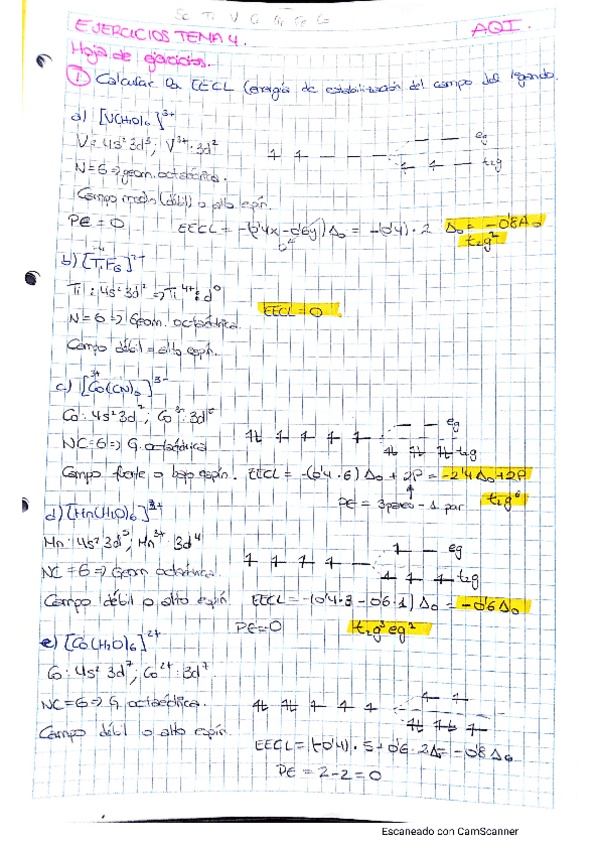 Sc Ti V Cr Mn Fe Co
EJERCICIOS TEMA 4.
AQI.
Hoja de ejercicios.
① Calcular la EECL (energía de estabilización del campo del ligando.
a) [V(H2O)6]3+
V: 4s² 3d³; V3+: 3d²
eg
t2g
N=6 => geom. octaédrica.
Campo medio (débil) o alto espín.
PE = 0
EECL = -(0'4x - 0'6y) Δo = -(0'4) · 2 Δo = -0'8Δo
t2g²
b) [TiF6]2-
Ti: 4s² 3d² => Ti4+: d⁰
EECL = 0
N=6 => Geom. octaédrica
Campo débil = alto espín.
c) [Co(CN)6]3-
3+
Co: 4s² 3d⁷; Co3+: 3d⁶
eg
NC=6 => G. octaédrica
t2g
Campo fuerte o bajo espín. EECL = -(0'4 · 6) Δo + 2P = -2'4Δo + 2P
PE = 3pares - 1 par
t2g⁶
d) [Mn(H2O)6]3+
Mn: 4s² 3d⁵; Mn3+: 3d⁴
eg
NC = 6 => Geom octaédrica.
t2g
Campo débil o alto espín. EECL = -(0'4·3 - 0'6·1) Δo = -0'6Δo
PE=0
t2g³ eg¹
e) [Co(H2O)6]2+
Co: 4s² 3d⁷; Co2+: 3d⁷
NC=6 => G. octaédrica.
Campo débil o alto espín.
EECL = (-0'4) · 5 + 0'6 · 2Δ = -0'8Δo
PE = 2-2 = 0
Escaneado con CamScanner